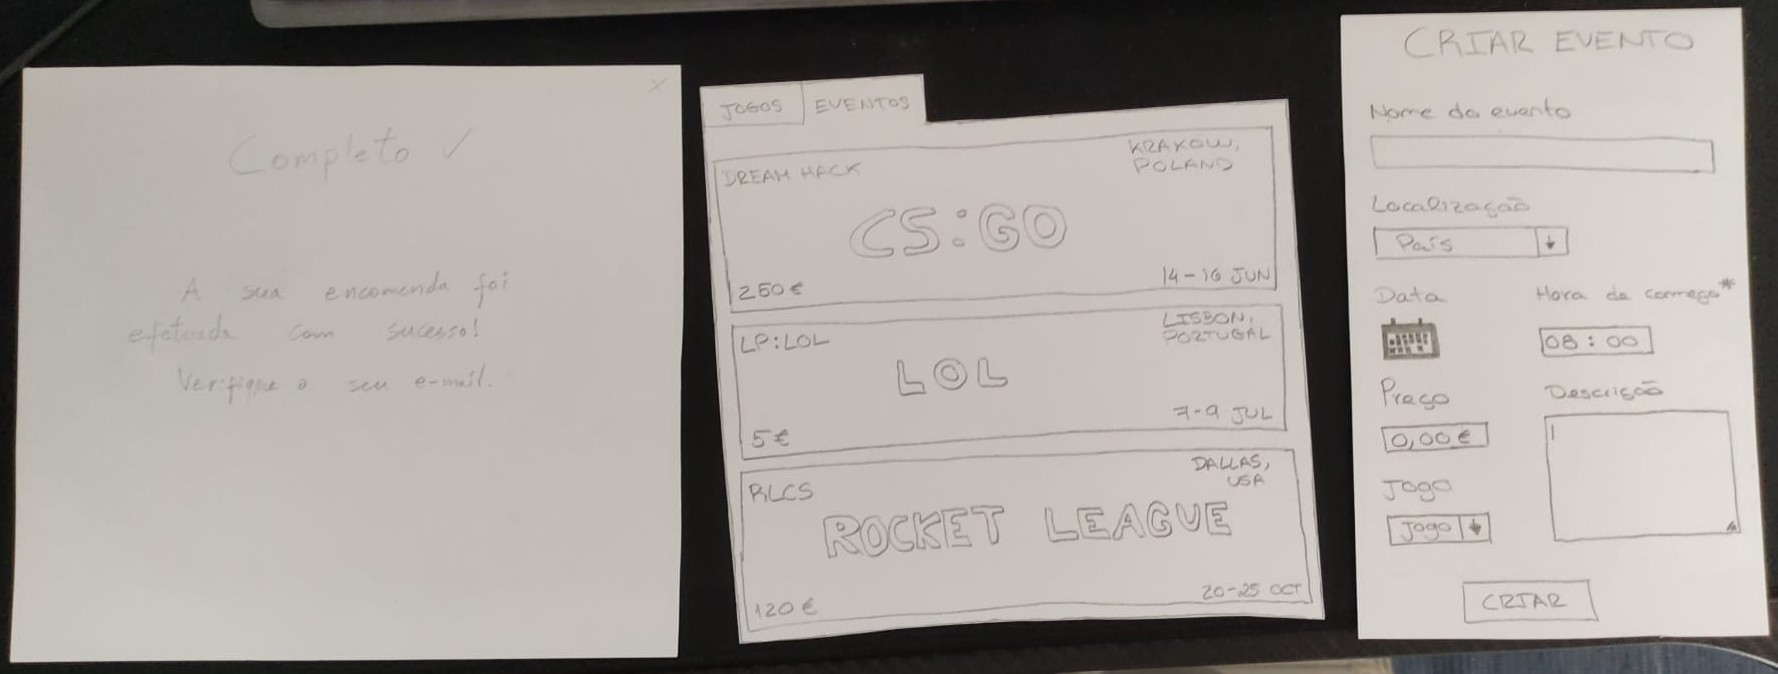 x
Completo ✓
A sua encomenda foi
efetuada com sucesso!
Verifique o seu e-mail.
JOGOS
EVENTOS
DREAM HACK
KRAKOW,
POLAND
CS:GO
250€
14-16 JUN
LP:LOL
LISBON,
PORTUGAL
LOL
5€
7-9 JUL
RLCS
DALLAS,
USA
ROCKET LEAGUE
120€
20-25 OCT
CRIAR EVENTO
Nome do evento
Localização
País
Data
Hora de começo*
08:00
Preço
Descrição
0,00€
Jogo
Jogo
CRIAR